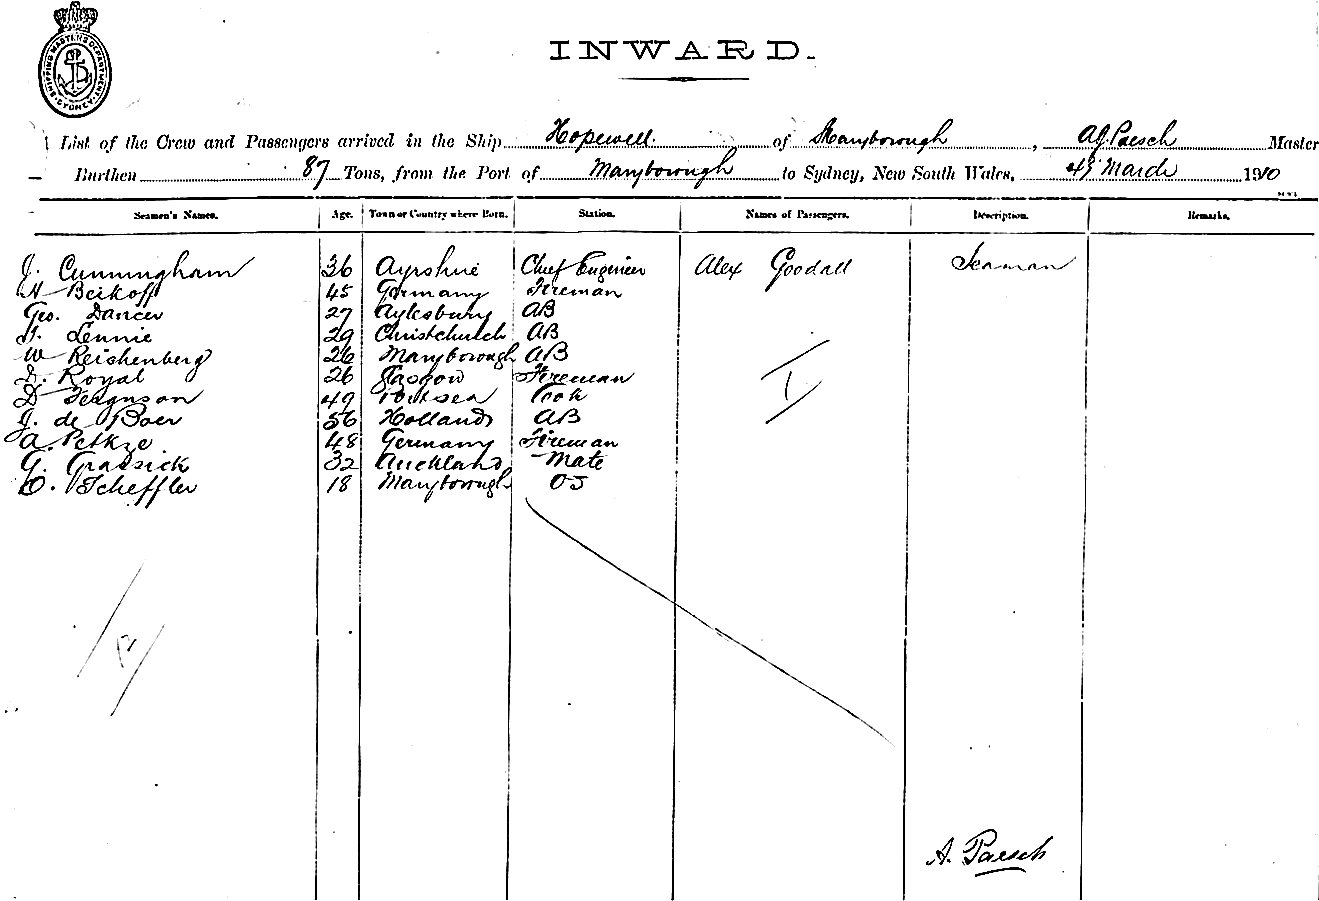 SHIPPING MASTER'S DEPARTMENT SYDNEY
INWARD.
List of the Crew and Passengers arrived in the Ship Hopewell. of Maryborough, A.J. Paesch Master
Burthen 87 Tons, from the Port of Maryborough to Sydney, New South Wales, March 1910
Seamen's Names. Age. Town or Country where Born. Station. Names of Passengers. Description. Remarks.
J. Cunningham 36 Ayrshire Chief Engineer Alex Goodall Seaman
H Beikoff 45 Germany Fireman
Geo. Dancer 27 Aylesbury AB
Lennie 29 Christchurch AB
W Reichenberg 26 Maryborough AB
D. Royal 26 Glasgow Fireman
D Ferguson 49 Portsea Cook
J. de Boer 56 Holland AB
A. Petkze 48 Germany Fireman
G. Grassick 32 Auckland Mate
Scheffler 18 Maryborough OS
A. Paesch